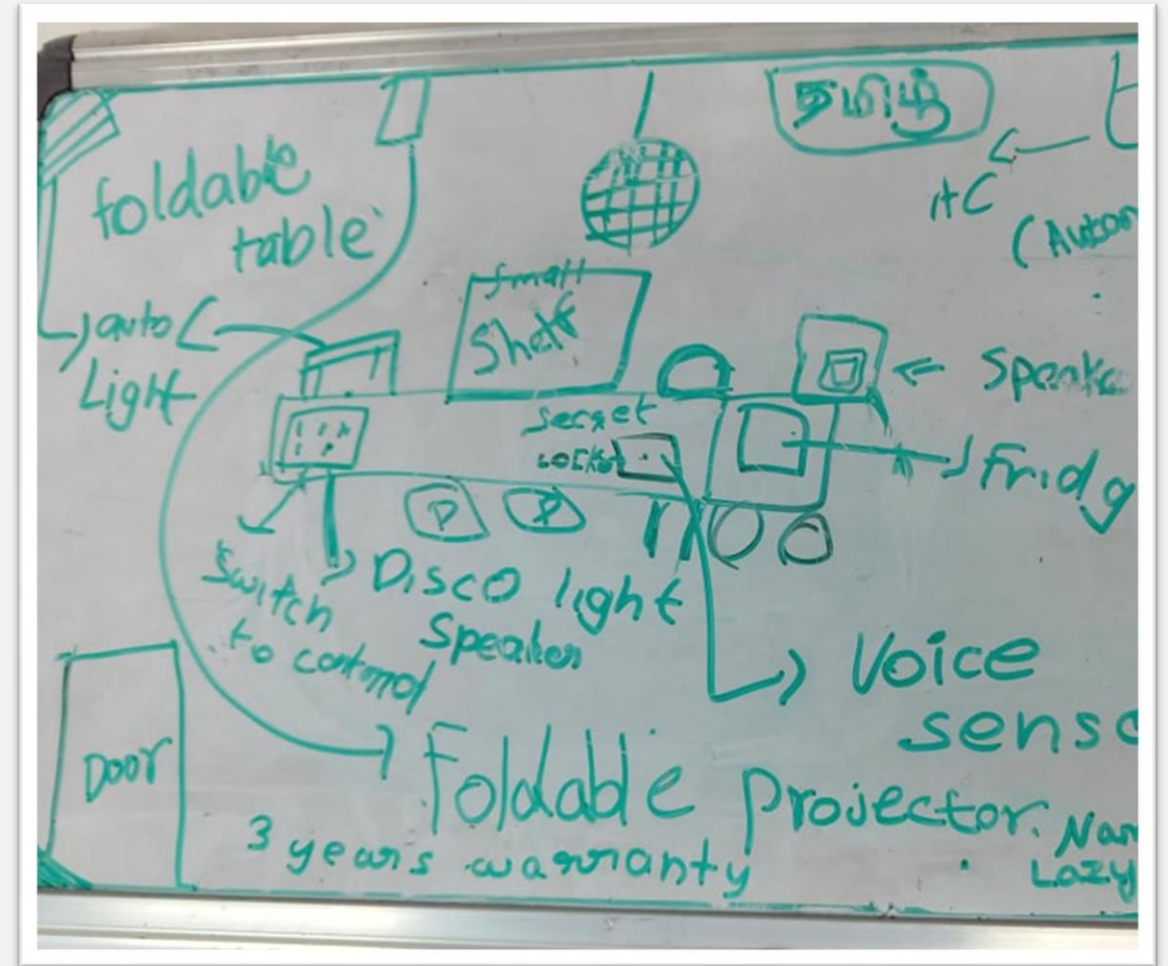 தமிழ்
foldable
table
AC
(Autom
small
Shelf
auto
Light
Speake
secret
locker
Fridg
P
P
Switch
to control
Disco light
Speaker
Voice
senso
Door
Foldable Projector.
3 years warranty
Nam
Lazy